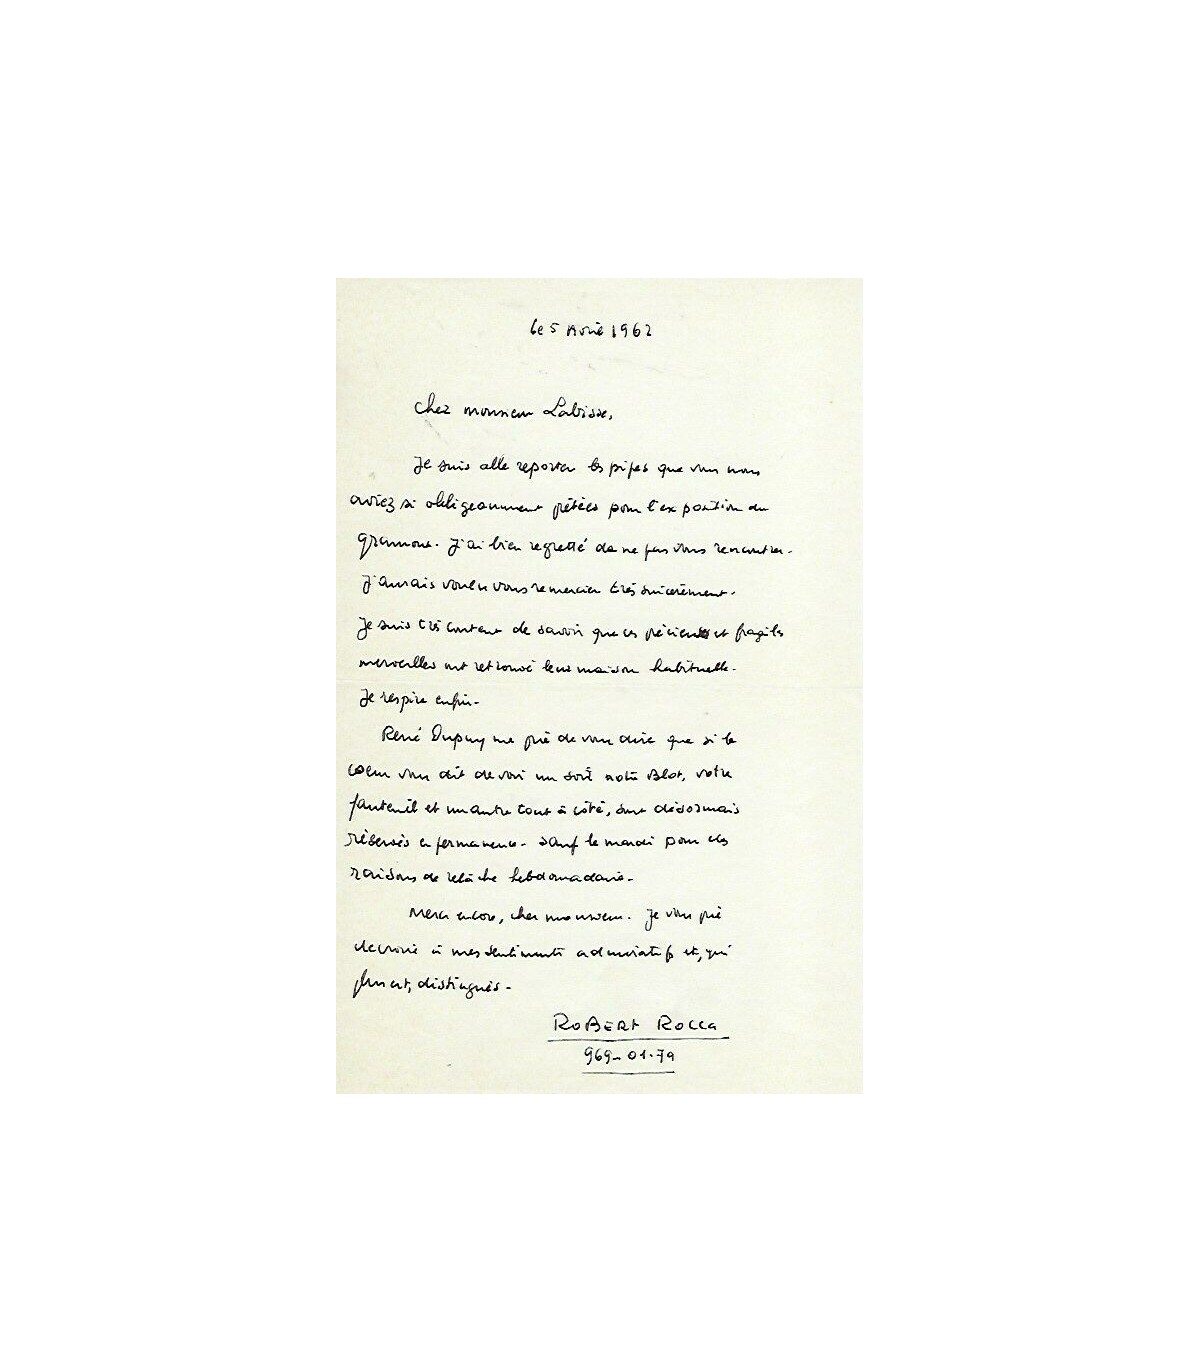 le 5 Avril 1962
Cher monsieur Labisse,
Je suis allé reporter les pipes que vous nous
aviez si obligeamment prêtées pour l'exposition du
gramont. J'ai bien regretté de ne pas vous rencontrer.
J'aurais voulu vous remercier très sincèrement.
Je suis très content de savoir que ces précieuses et fragiles
merveilles ont retrouvé leur maison habituelle.
Je respire enfin.
René Dupuy me prie de vous dire que si le
coeur vous dit de voir un soir notre Blot, votre
fauteuil et un autre tout à côté, sont désormais
réservés en permanence. Sauf le mardi pour des
raisons de relâche hebdomadaire.
Merci encore, cher monsieur. Je vous prie
de croire à mes sentiments admiratifs et, qui
plus est, distingués.
ROBERT ROCCA
969-01-79